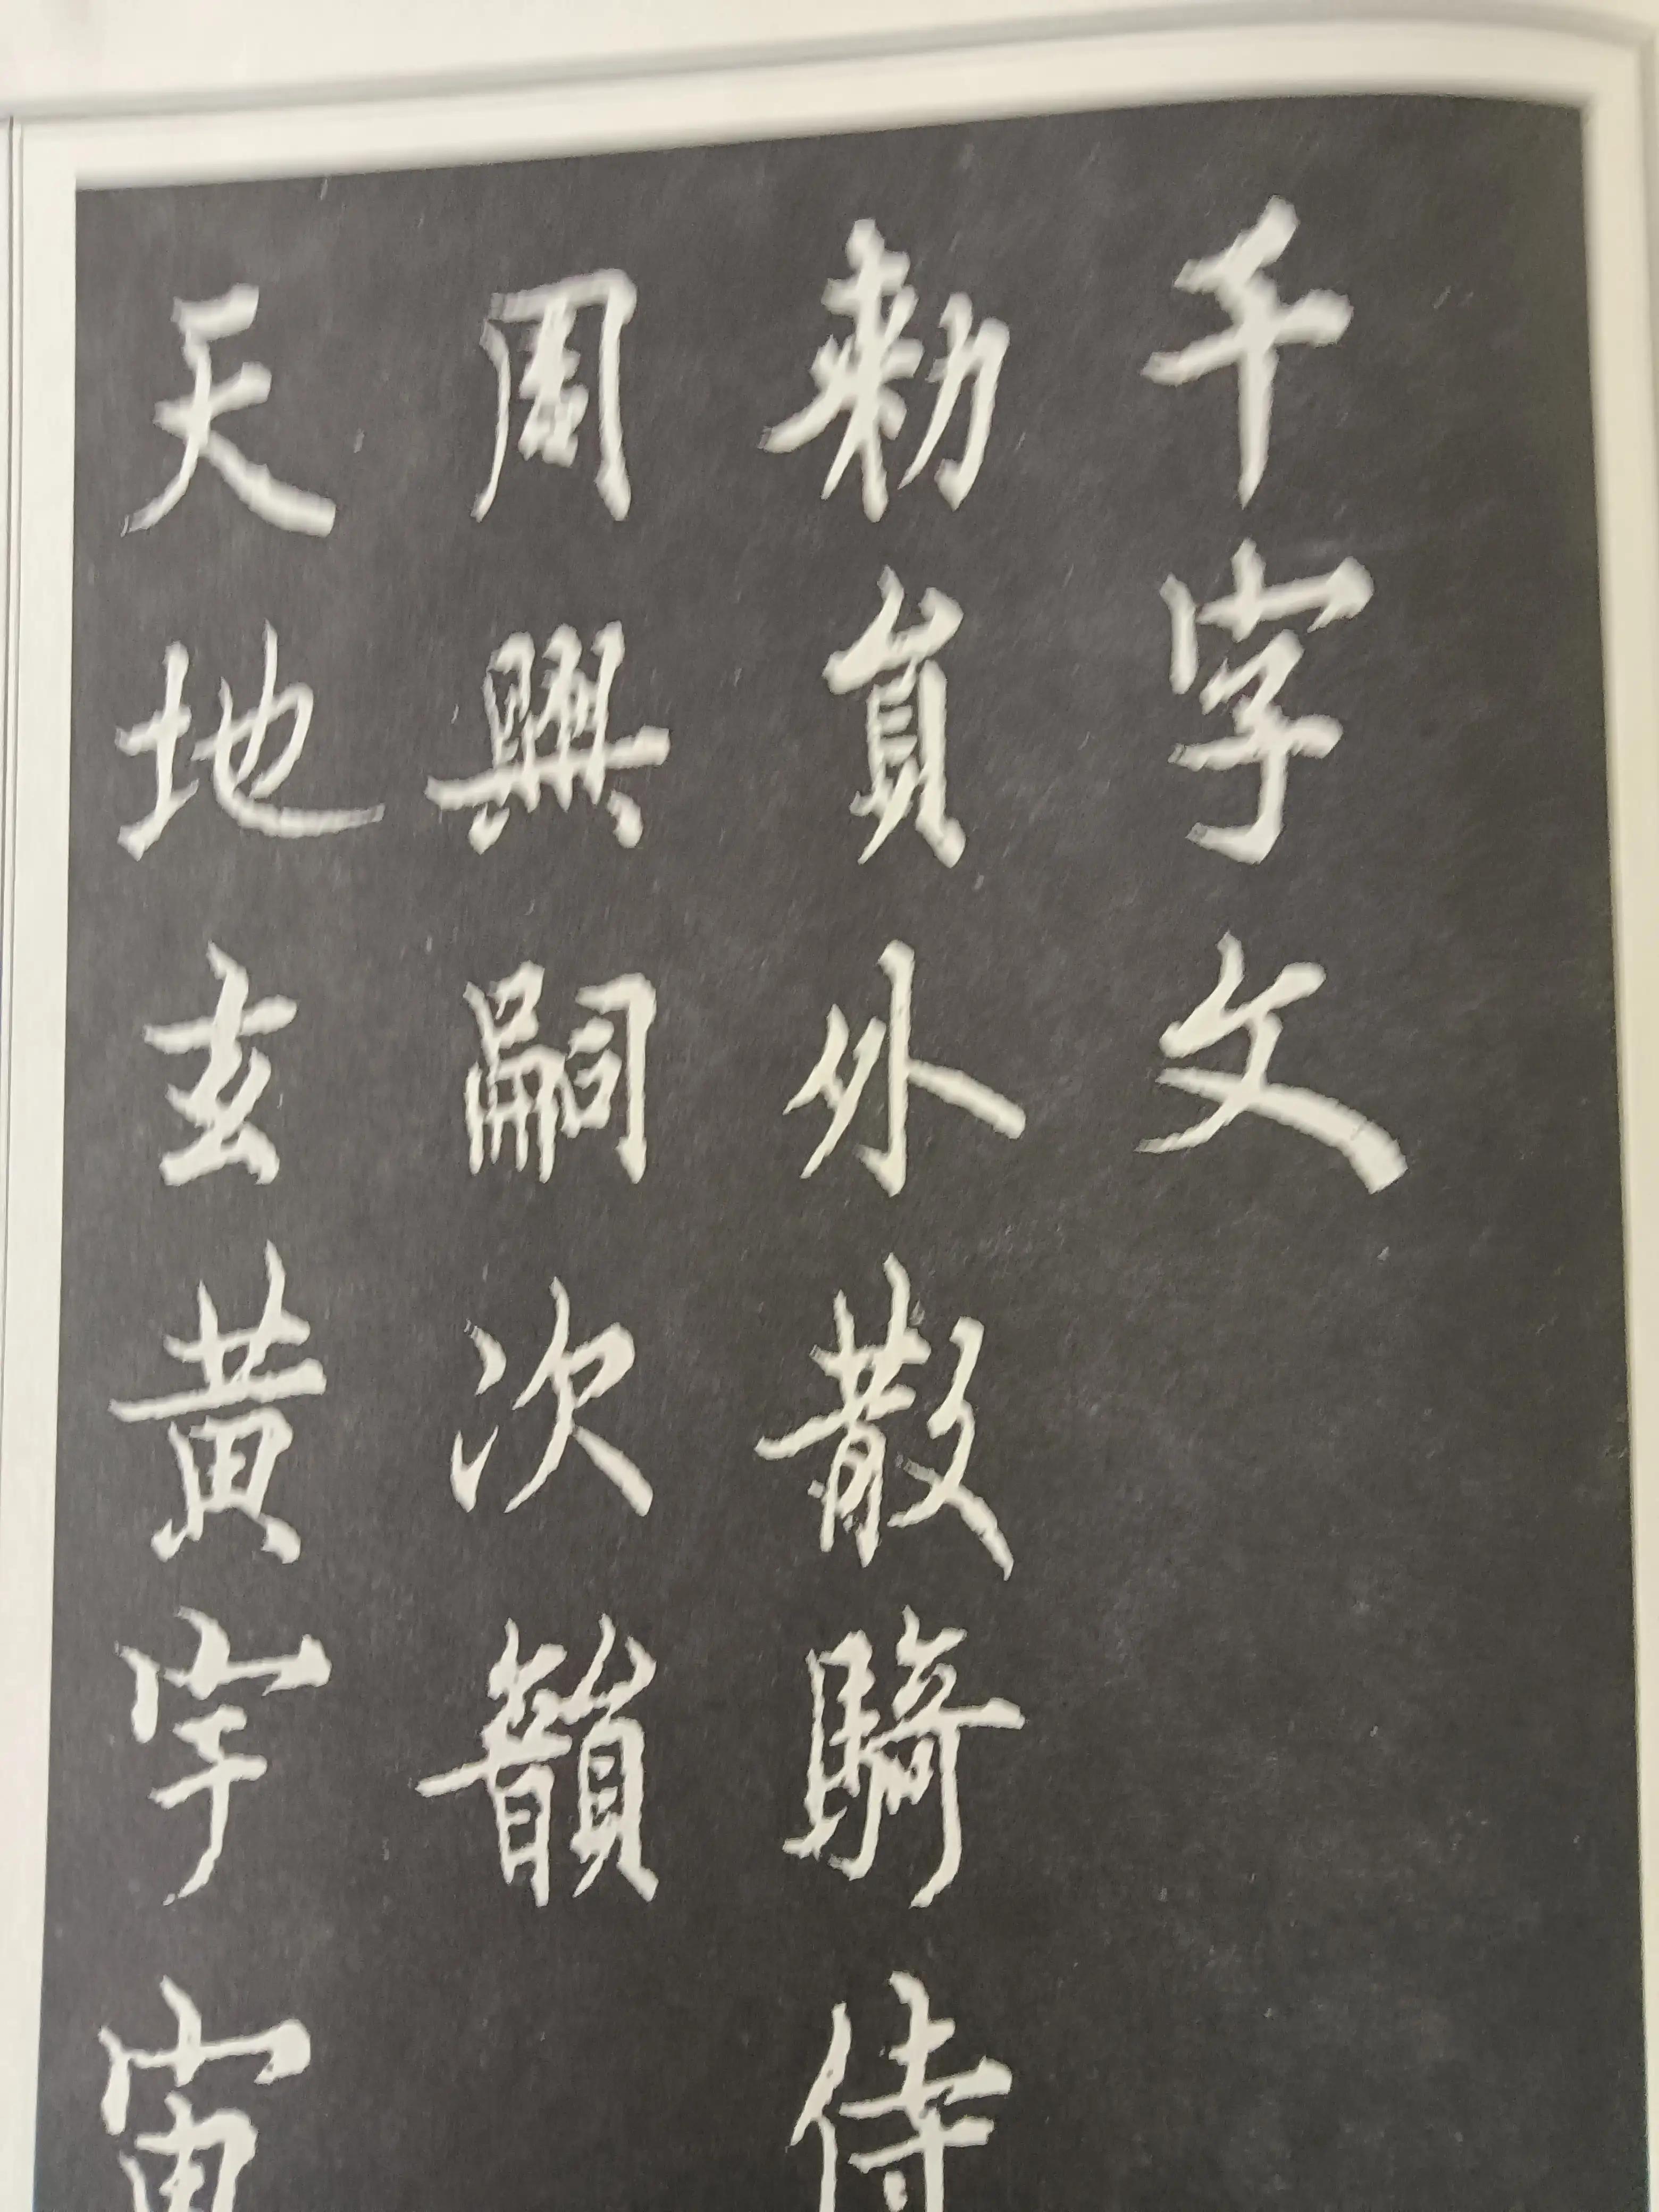 千字文
勑員外散騎侍
周興嗣次韻
天地玄黃宇宙